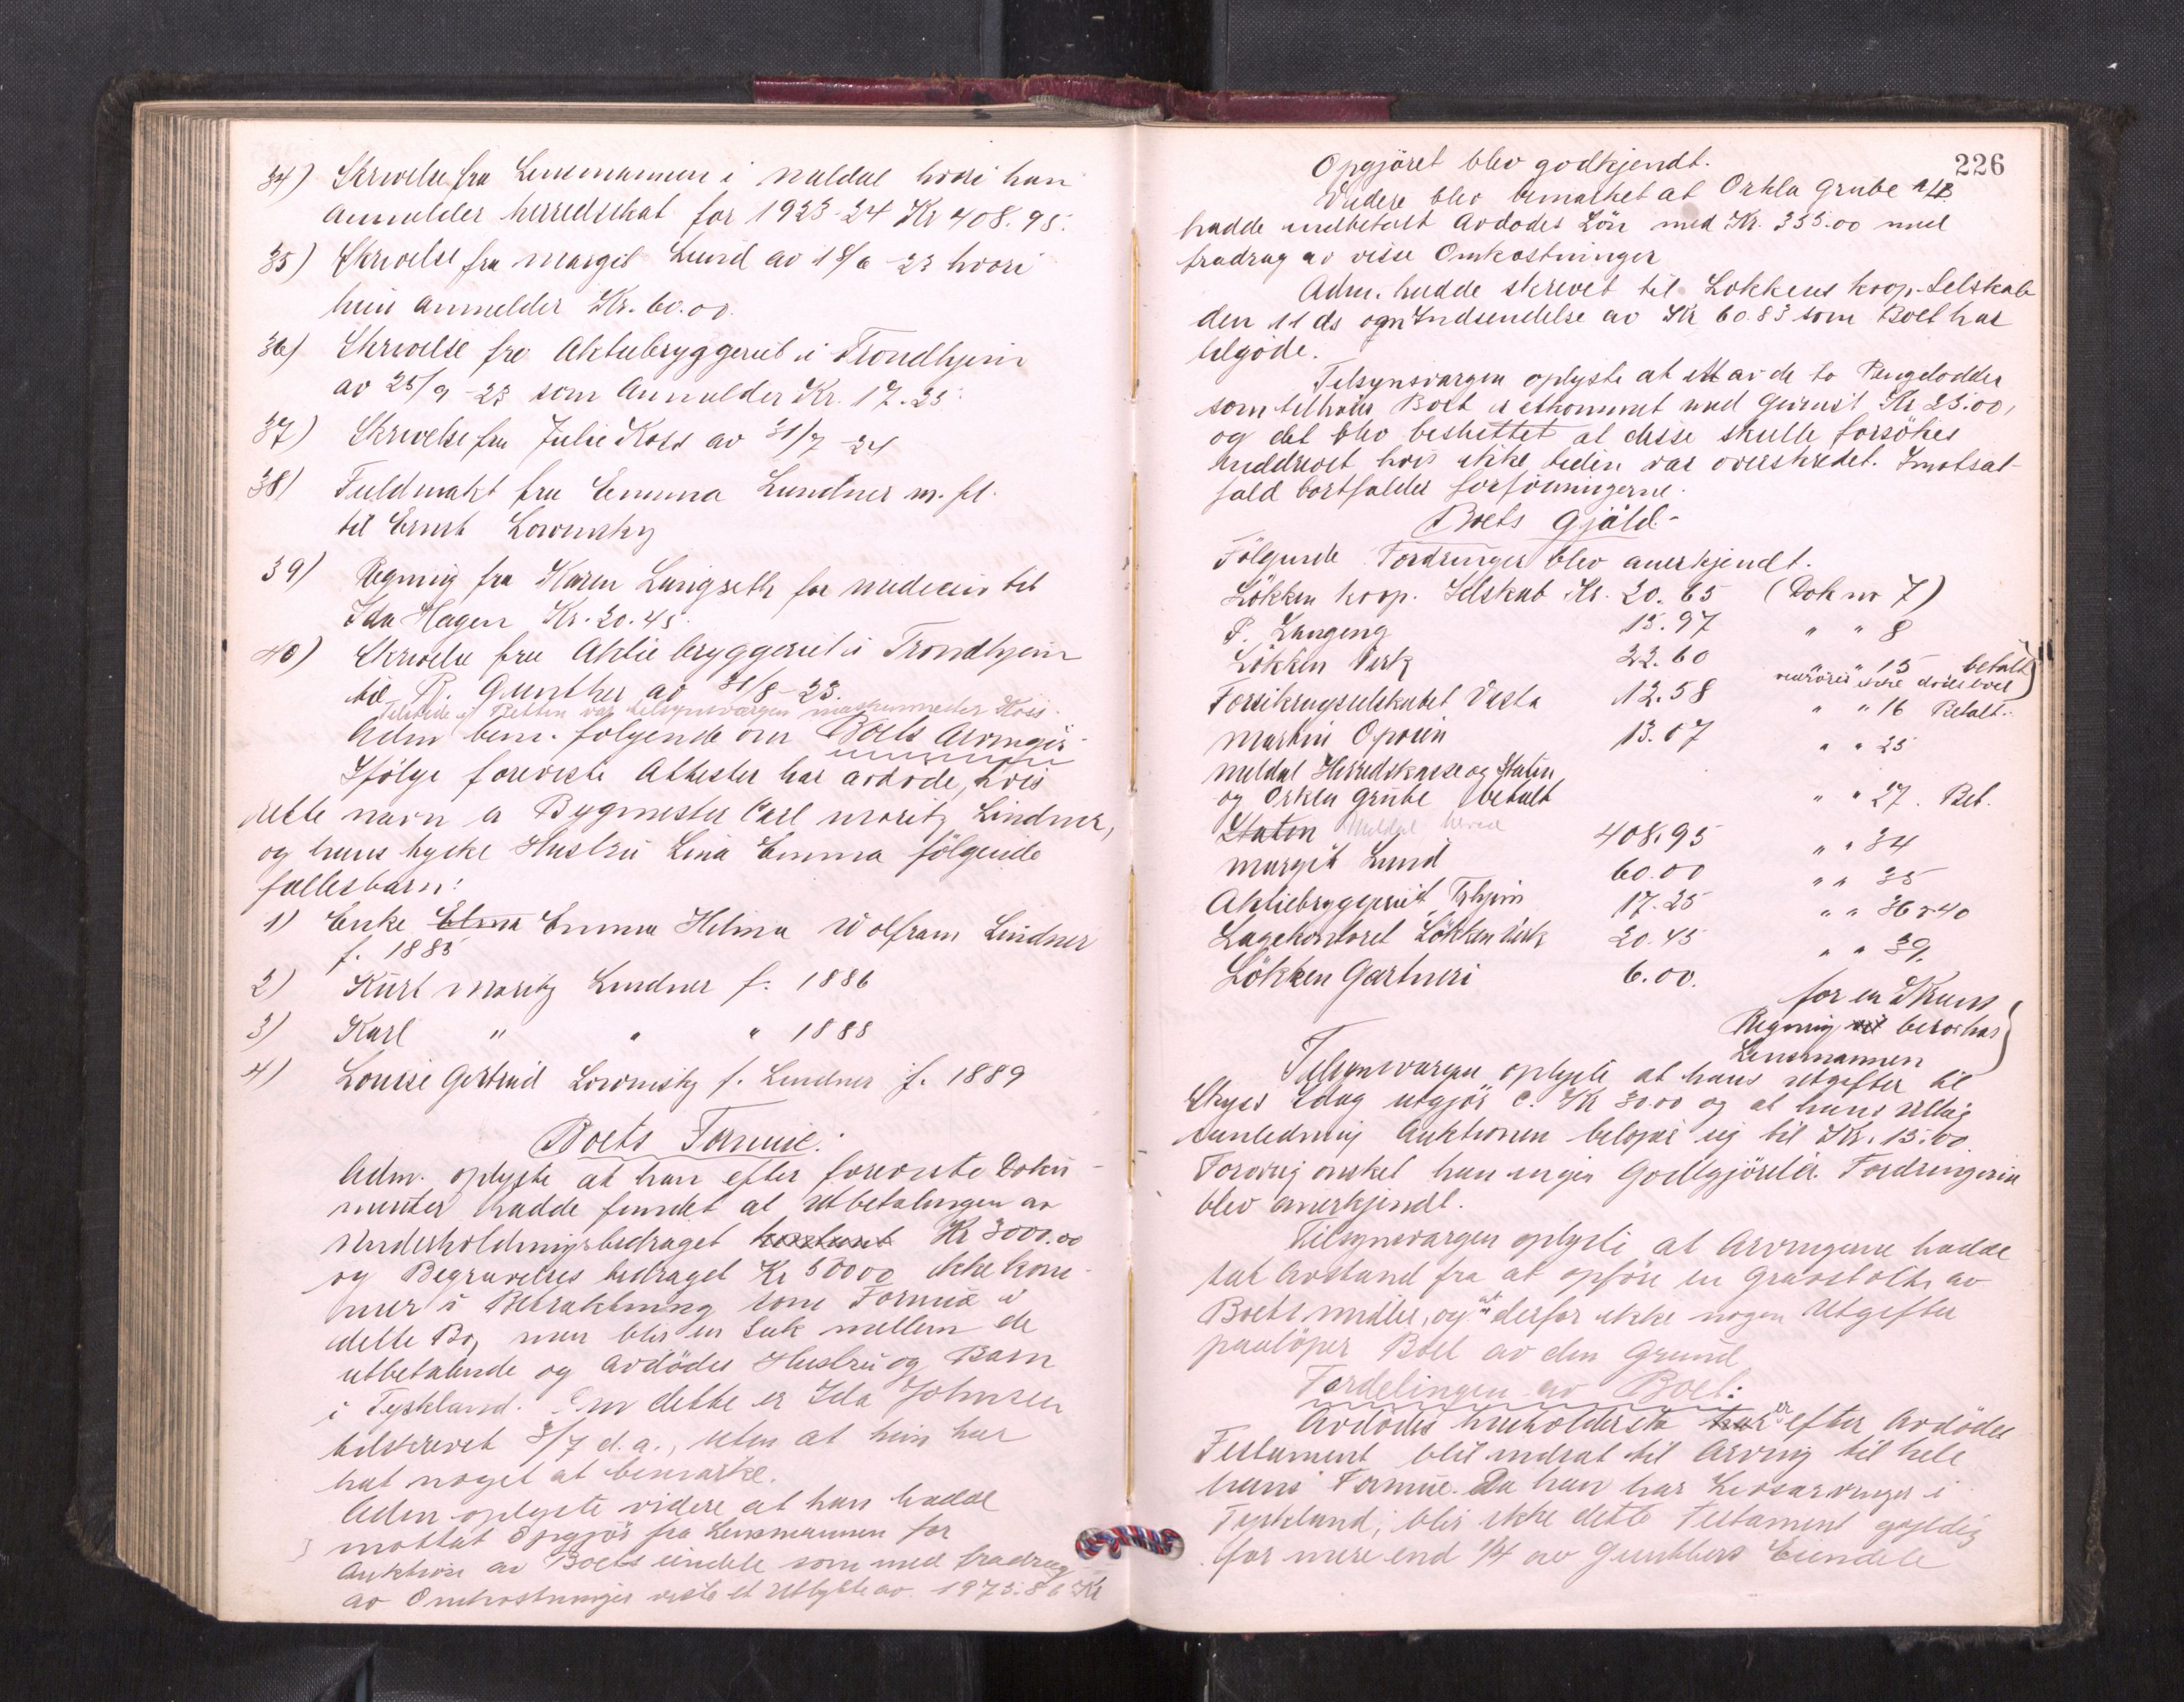 34) Skrivelse fra Lensmannen i Meldal hvori han
anmelder herredskat for 1923-24 Kr 408.95.
35) Skrivelse fra Margit Lund av 18/6 - 23 hvori
hun anmelder Kr. 60.00.
36) Skrivelse fra Aktiebryggeriet i Trondhjem
av 25/9 - 23 som Anmelder Kr. 17.25
37) Skrivelse fra Julie Koss av 31/7 - 24
38) Fuldmakt fra Emma Lindner m. fl.
til Ernst Lowinsky
39) Regning fra Karen Langseth for medicin til
Ida Hagen Kr. 20.45.
40) Skrivelse fra Aktiebryggeriet i Trondhjem
til R. Gunther av 31/8 - 23.
Tilstede i Retten var tilsynsvergen maskinmester Koss.
Adm bem. følgende om Boets Arvinger
Ifølge foreviste Attester har avdøde, hvis
rette navn er Bygmester Carl Moritz Lindner,
og hans tyske Hustru Lina Emma følgende
fællesbarn:
1) Enke Elma Emma Helma Wolfram Lindner
f. 1885
2) Kurt Moritz Lindner f. 1886
3) Karl " " " 1888
4) Louise Gertrud Lowinsky f. Lindner f. 1889
Boets Formue:
Adm. oplyste at han efter foreviste Doku-
menter hadde fundet at Utbetalingen av
Underholdningsbedraget Kr 3000.00
og Begravelses bedraget Kr 500.00 ikke kom-
mer i Betraktning som Formue i
dette Bo, men blir en Sak mellem de
utbetalende og Avdødes Hustru og Barn
i Tyskland. Om dette er Ida Johnsen
tilskrevet 8/7 d.a., uten at hun har
hat noget at bemærke.
Adm oplyste videre at han hadde
mottat Opgjør fra Lensmannen for
Auktion av Boets eiendele som med fradrag
av Omkostninger viste et Utbytte av 1973.86 Kr
226
Opgjøret blev godkjendt.
Videre blev bemerket at Orkla Grube A/B
hadde indbetalt Avdødes Løn med Kr. 355.00 med
fradrag av visse Omkostninger
Adm. hadde skrevet til Løkkens koop. Selskab
den 11 ds om Indsendelse av Kr 60.83 som Boet har
tilgode.
Tilsynsvergen oplyste at ett av de to Pengelodder
som tilhører Boet er utkommet med Gevinst Kr 25.00,
og det blev besluttet at disse skulle forsøkes
inddrevet hvis ikke tiden var overskredet. I motsat-
fald bortfalder forføiningerne.
Boets Gjæld -
Følgende Fordringer blev anerkjendt.
Løkken koop. Selskab Kr. 20.65 (Dok nr 7)
P. Langeng 15.97 " " 8
Løkken Verk 22.60 " " 15 betalt
vedrører ikke dødsboet
Forsikringsselskabet Vesta 12.58 " " 16 Betalt.
Martin Opøien 13.07 " " 25
Meldal Herredskasse og Staten
og Orkla Grube betalt " " 27. Bet.
Staten Meldal herred 408.95 " " 34
Margit Lund 60.00 " " 35
Aktiebryggeriet Trhjem 17.25 " " 36 & 40
Lægekontoret Løkken Verk 20.45 " " 39.
Løkken Gartneri 6.00. for en Krans
Regning bero hos
Lensmannen
Tilsynsvergen oplyste at hans utgifter til
Skyss idag utgjør c. Kr 30.00 og at hans utlæg
i anledning Auktionen beløper sig til Kr. 15.00
Forøvrig ønsket han ingen Godtgjørelse. Fordringerne
blev anerkjendt.
Tilsynsvergen oplyste at Arvingerne hadde
tat Avstand fra at opføre en Gravstøtte av
Boets midler, og at derfor ikke nogen Utgifter
paaløper Boet av den Grund
Fordelingen av Boet:
Avdødes husholderske har er efter Avdødes
Testament blit indsat til Arving til hele
hans Formue. Da han har Livsarvinger i
Tyskland, blir ikke dette Testament gyldig
for mere end 1/4 av Gunthers Eiendele